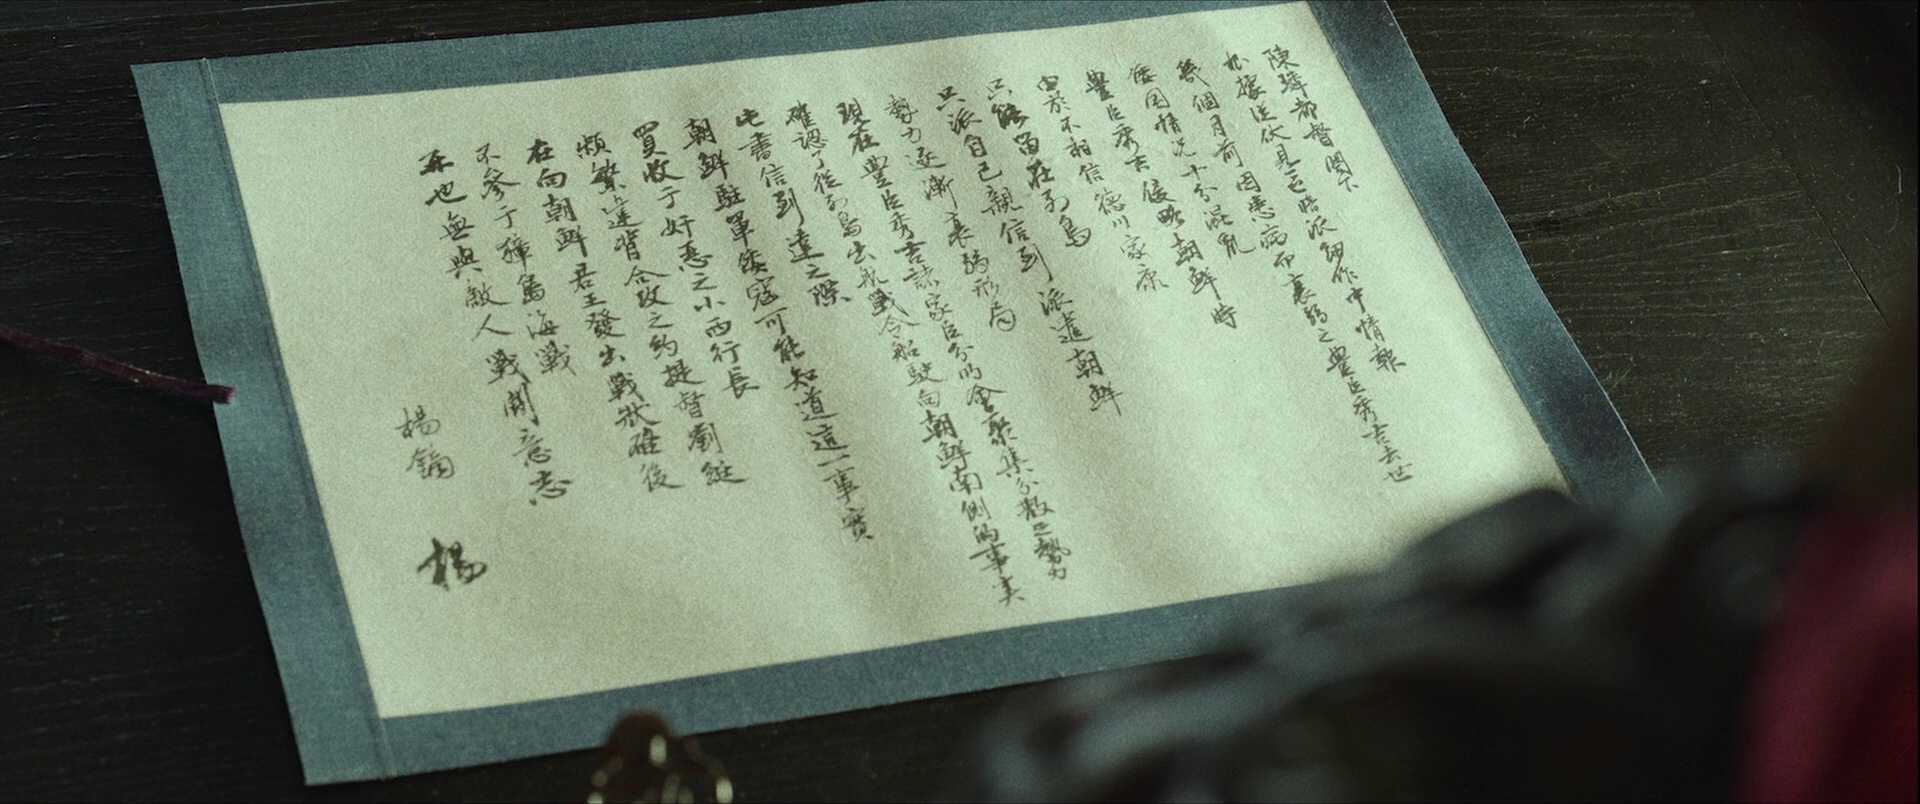 陳璘都督閣下
根據送伏見區暗派細作中情報
幾個月前因患病而衰弱之豊臣秀吉去世
倭国情况十分混乱
豊臣秀吉侵略朝鮮時
由於不相信德川家康
只能留在列島
只派自己親信到派遣朝鮮
勢力逐漸衰弱形局
現在豊臣秀吉諸家臣分的會聚集分散之勢力
確認了從列島出飛戰令船駛向朝鮮南側的事实
此書信到達之際
朝鮮駐軍倭寇可能知道這一事實
買收于奸悪之小西行長
頻繁違背合攻之約提督劉綎
在向朝鮮君王發出戰狀確後
不參于獐島海戰
再也無與敵人戰鬪意志
楊鎬
楊